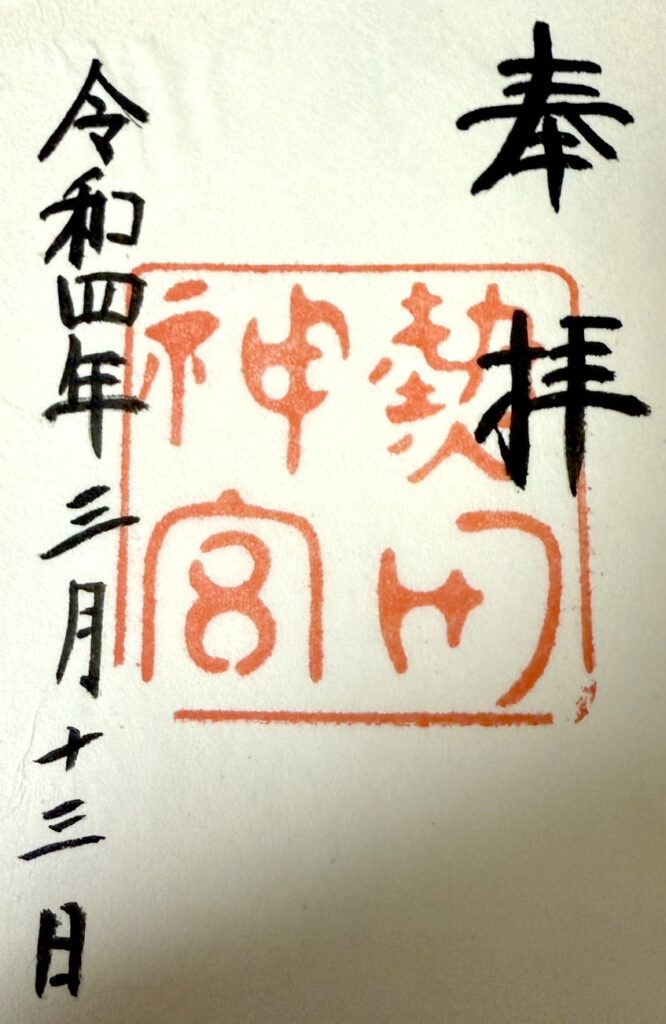 奉拝
熱田
神宮
令和四年三月十三日